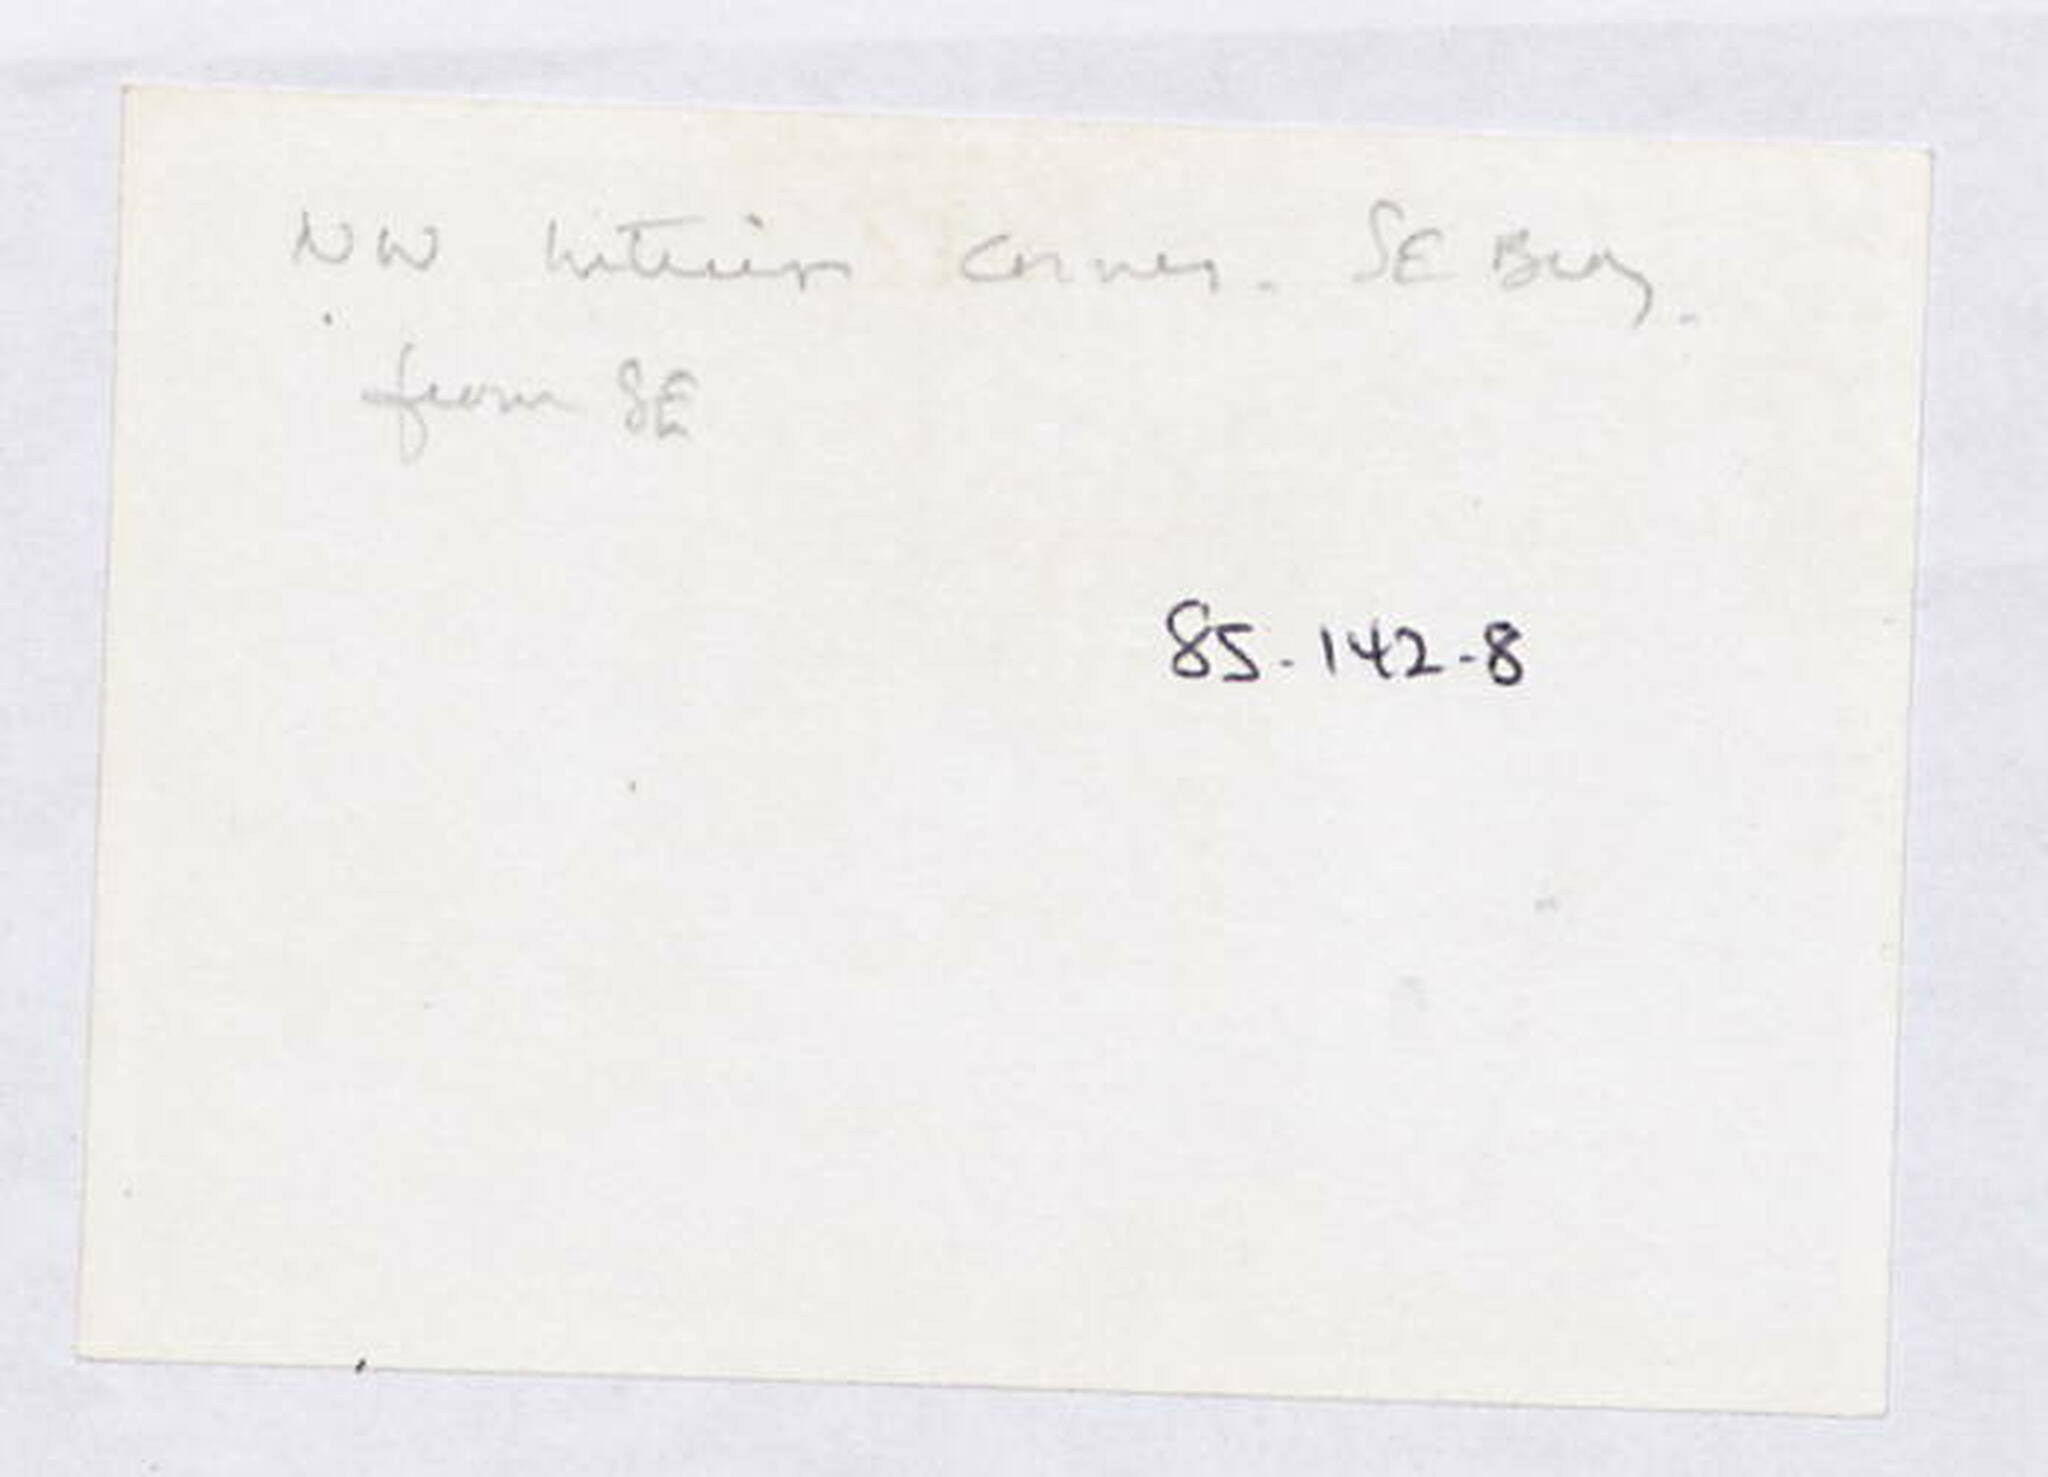 NW Interior Corner. SE Bay.
from SE
85-142-8